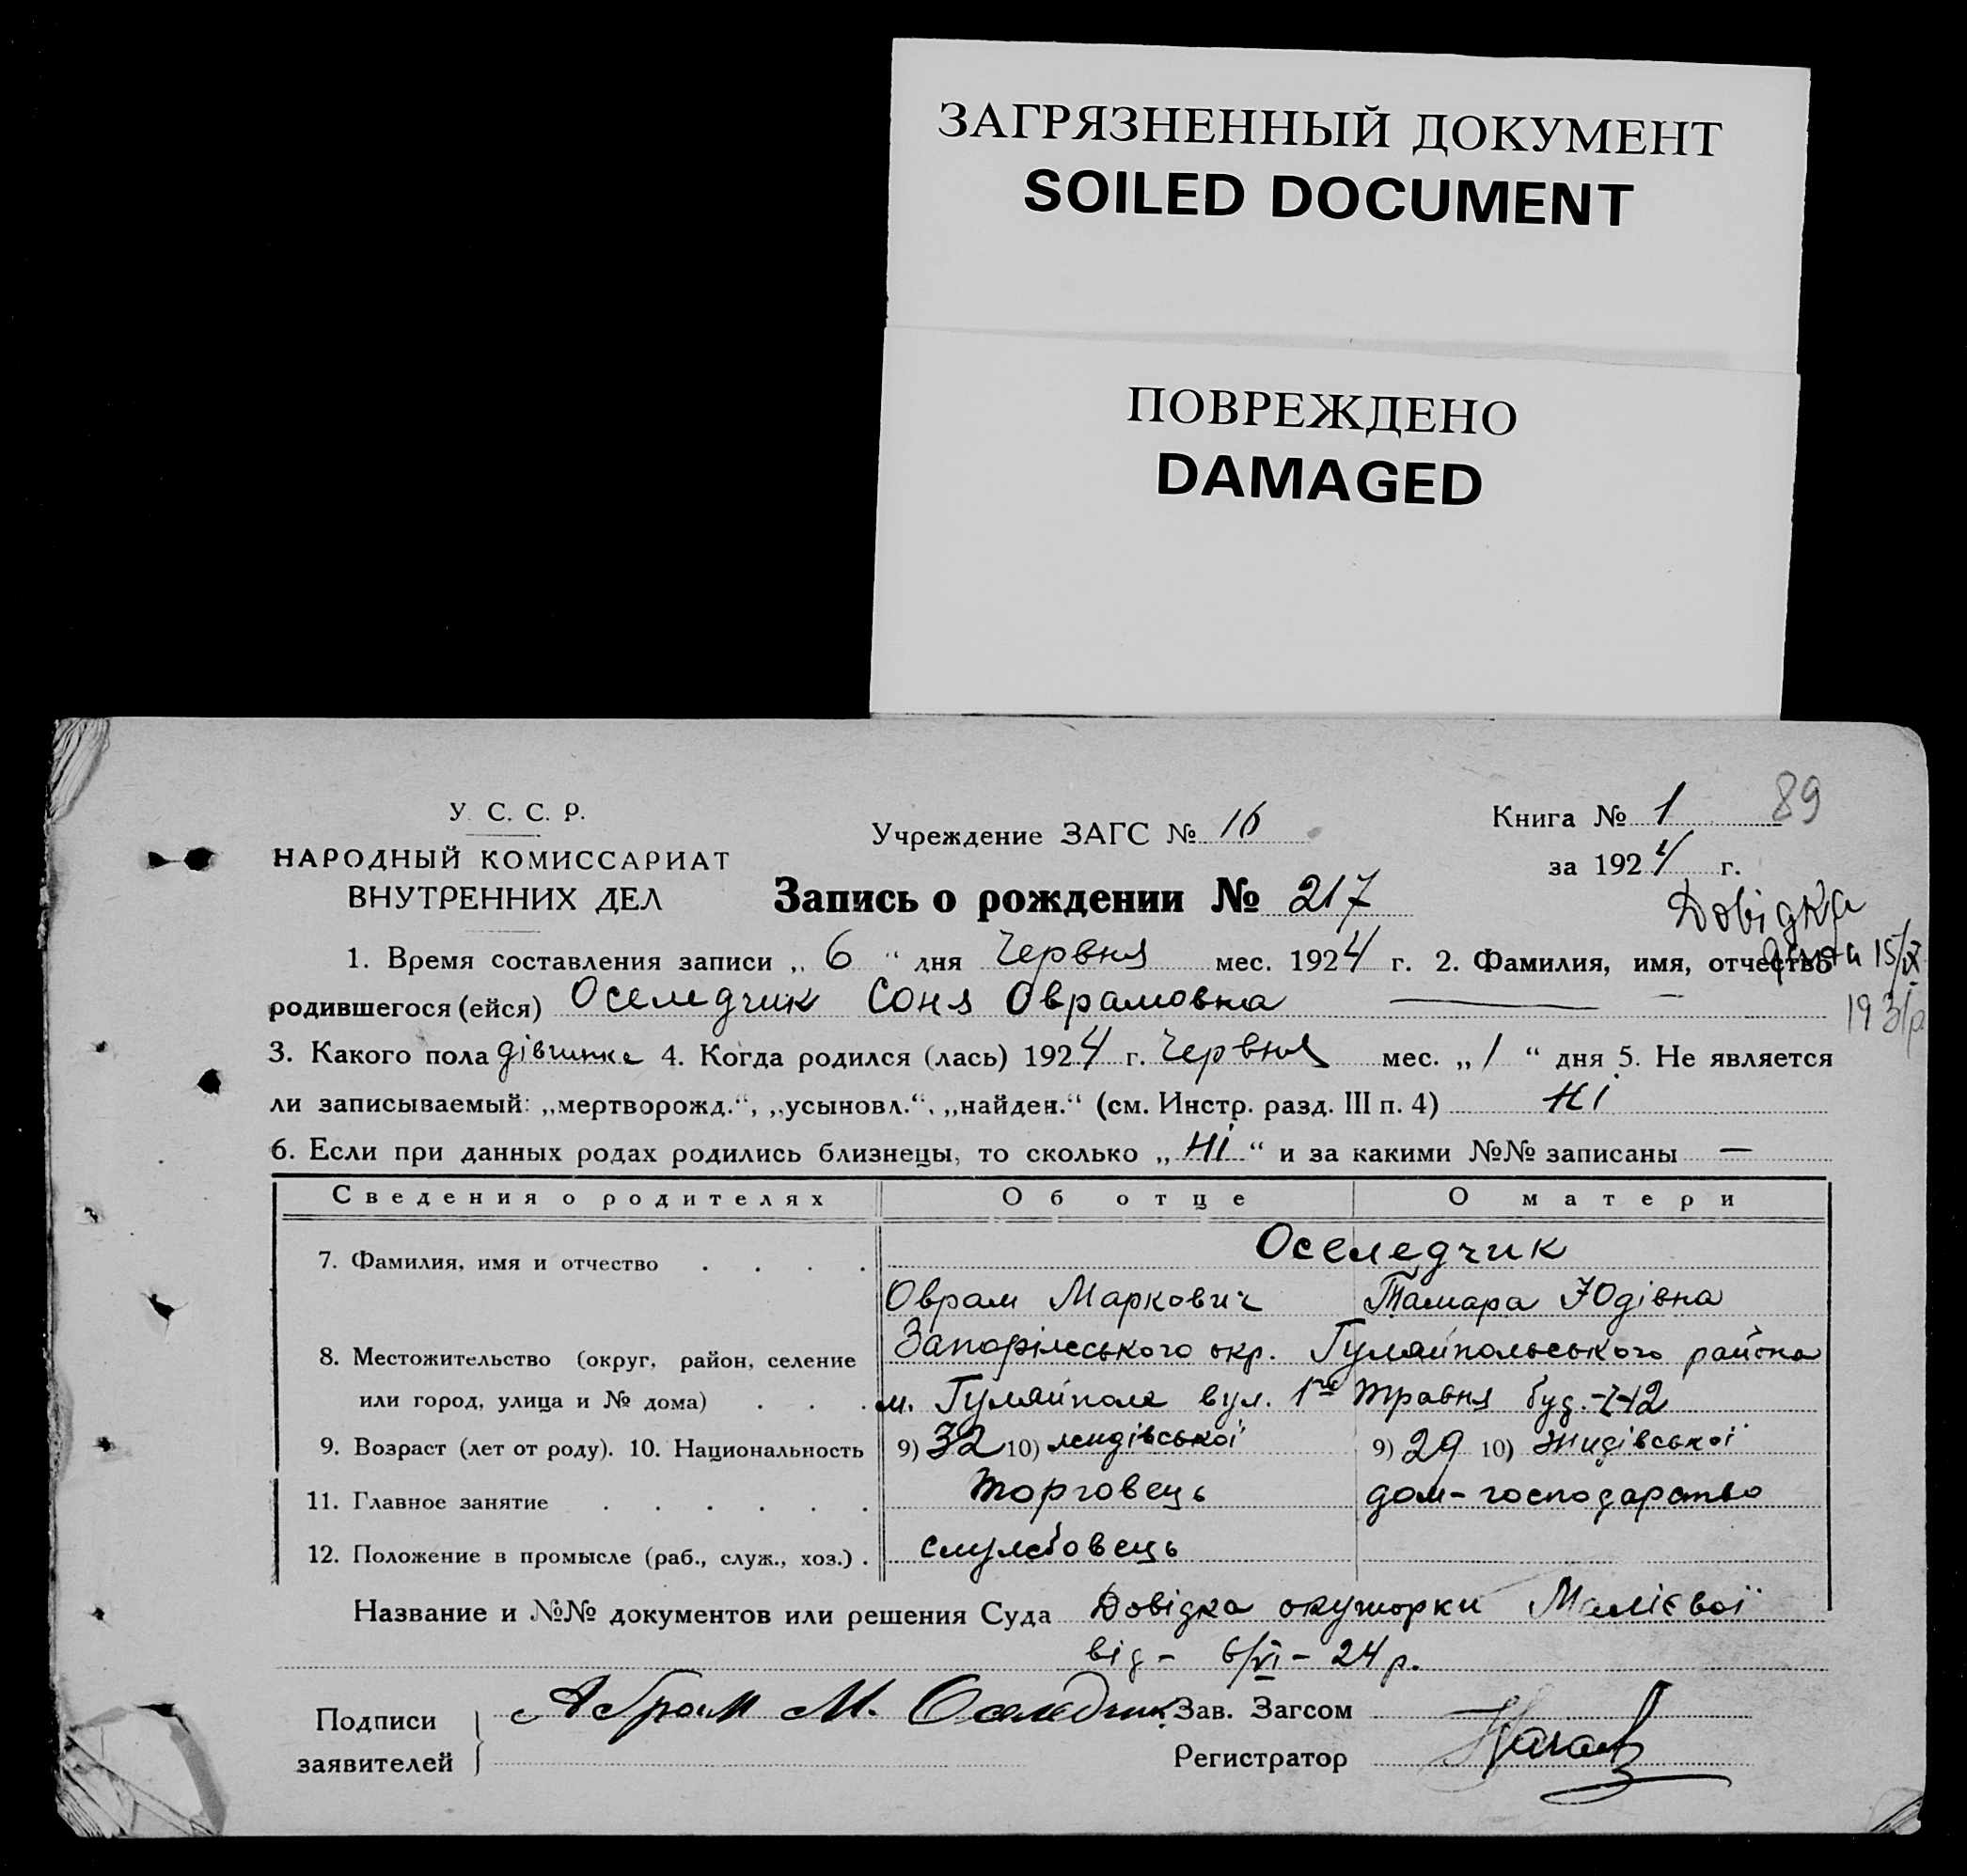 ЗАГРЯЗНЕННЫЙ ДОКУМЕНТ
SOILED DOCUMENT
ПОВРЕЖДЕНО
DAMAGED
У. С. С. Р.
НАРОДНЫЙ КОМИССАРИАТ
ВНУТРЕННИХ ДЕЛ
Учреждение ЗАГС № 16
Книга № 1 89
за 1924 г.
Запись о рождении № 217
Довідка
дана 15/IX
1931р
1. Время составления записи „ 6 “ дня Червня мес. 1924 г. 2. Фамилия, имя, отчество
родившегося (ейся) Оселедчик Соня Оврамовна —
3. Какого пола дівчинка 4. Когда родился (лась) 1924 г. Червня мес. „ 1 “ дня 5. Не является
ли записываемый: „мертворожд.“, „усыновл.“, „найден.“ (см. Инстр. разд. III п. 4) Ні
6. Если при данных родах родились близнецы, то сколько „ Ні “ и за какими №№ записаны —
Сведения о родителях Об отце О матери
7. Фамилия, имя и отчество . . . . Оселедчик
Оврам Маркович Тамара Юдівна
8. Местожительство (округ, район, селение Запоріжського окр. Гуляйпольського района
или город, улица и № дома) . . . м. Гуляйполе вул. 1го Травня буд.
9. Возраст (лет от роду). 10. Национальность 9) 32 10) жидівської 9) 29 10) жидівської
11. Главное занятие . . . . . . торговець дом-господарство
12. Положение в промысле (раб., служ., хоз.) . службовець
Название и №№ документов или решения Суда Довідка окушорки
від - 6/VI - 24 р.
Подписи
заявителей
Абрам М. Оселедчик
Зав. Загсом
Регистратор